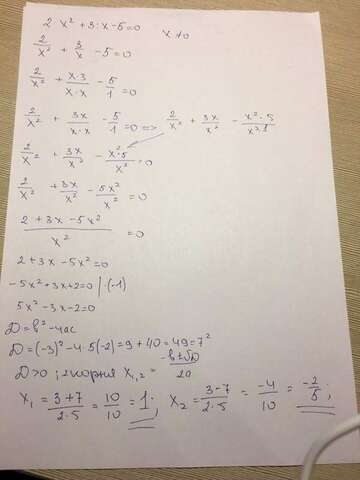 2 x² + 3·x - 5 = 0   x ≠ 0
2/x² + 3/x - 5 = 0
2/x² + x·3/x·x - 5/1 = 0
2/x² + 3x/x·x - 5/1 = 0 <=> 2/x² + 3x/x² - x²·5/x²·1
2/x² + 3x/x² - x²·5/x² = 0
2/x² + 3x/x² - 5x²/x² = 0
2 + 3x - 5x²/x² = 0
2 + 3x - 5x² = 0
-5x² + 3x + 2 = 0 | ·(-1)
5x² - 3x - 2 = 0
D = b² - 4ac
D = (-3)² - 4·5(-2) = 9 + 40 = 49 = 7²
D > 0 ; 2 корня X₁,₂ = -b±√D/2a
X₁ = 3+7/2·5 = 10/10 = 1; X₂ = 3-7/2·5 = -4/10 = -2/5;